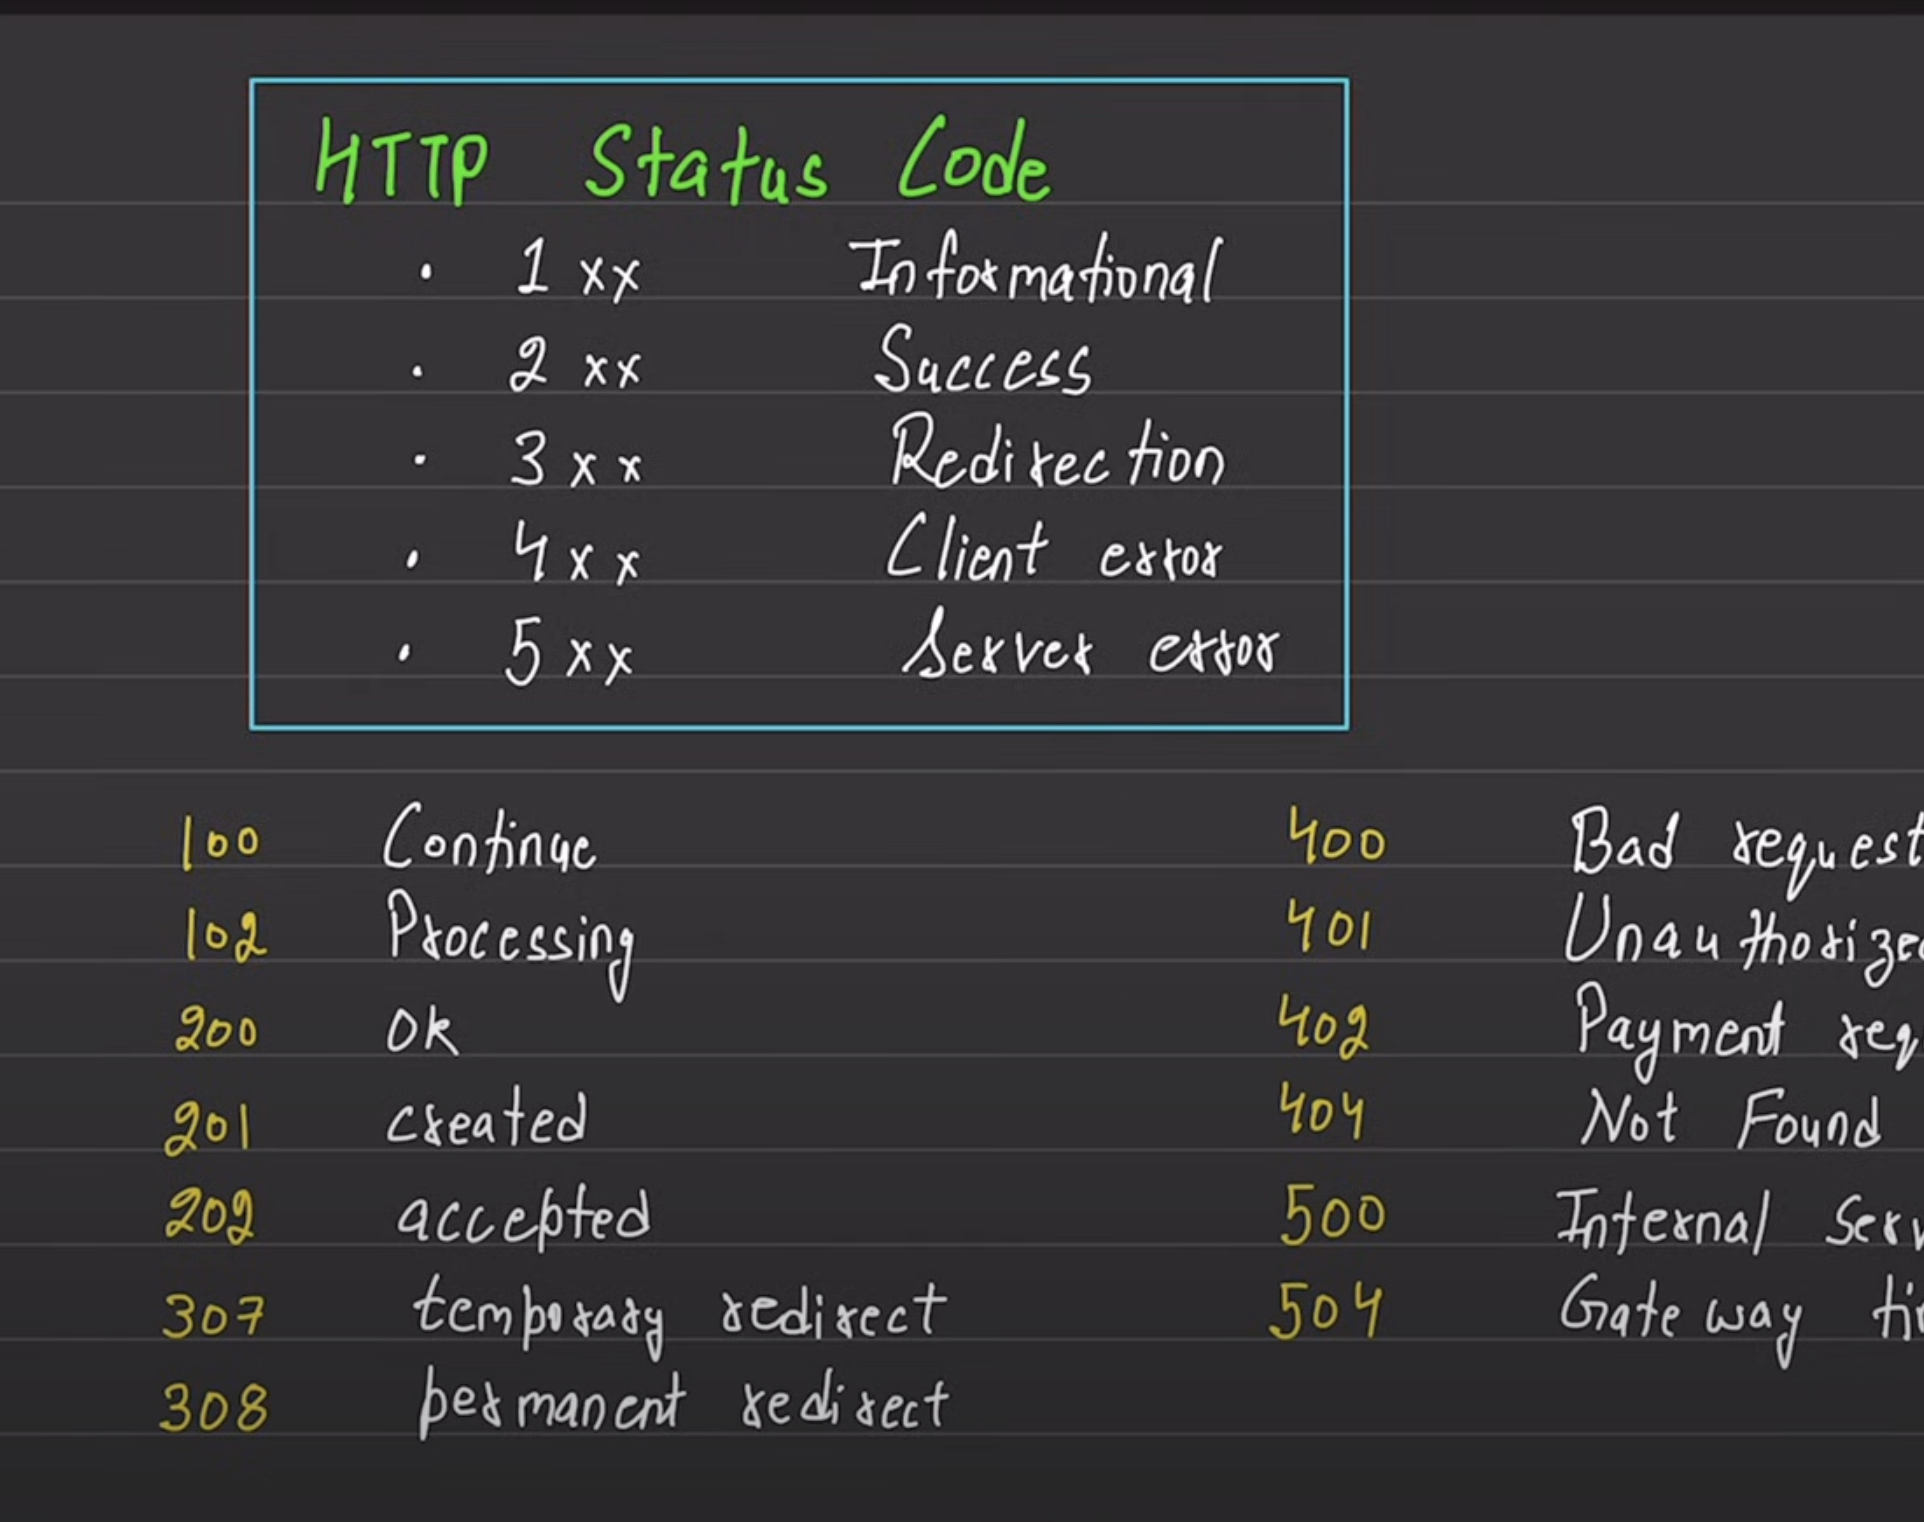 HTTP Status Code
• 1xx Informational
• 2xx Success
• 3xx Redirection
• 4xx Client error
• 5xx Server error
100 Continue
102 Processing
200 OK
201 created
202 accepted
307 temporary redirect
308 permanent redirect
400 Bad request
401 Unauthorized
402 Payment req
404 Not Found
500 Internal Serv
504 Gateway